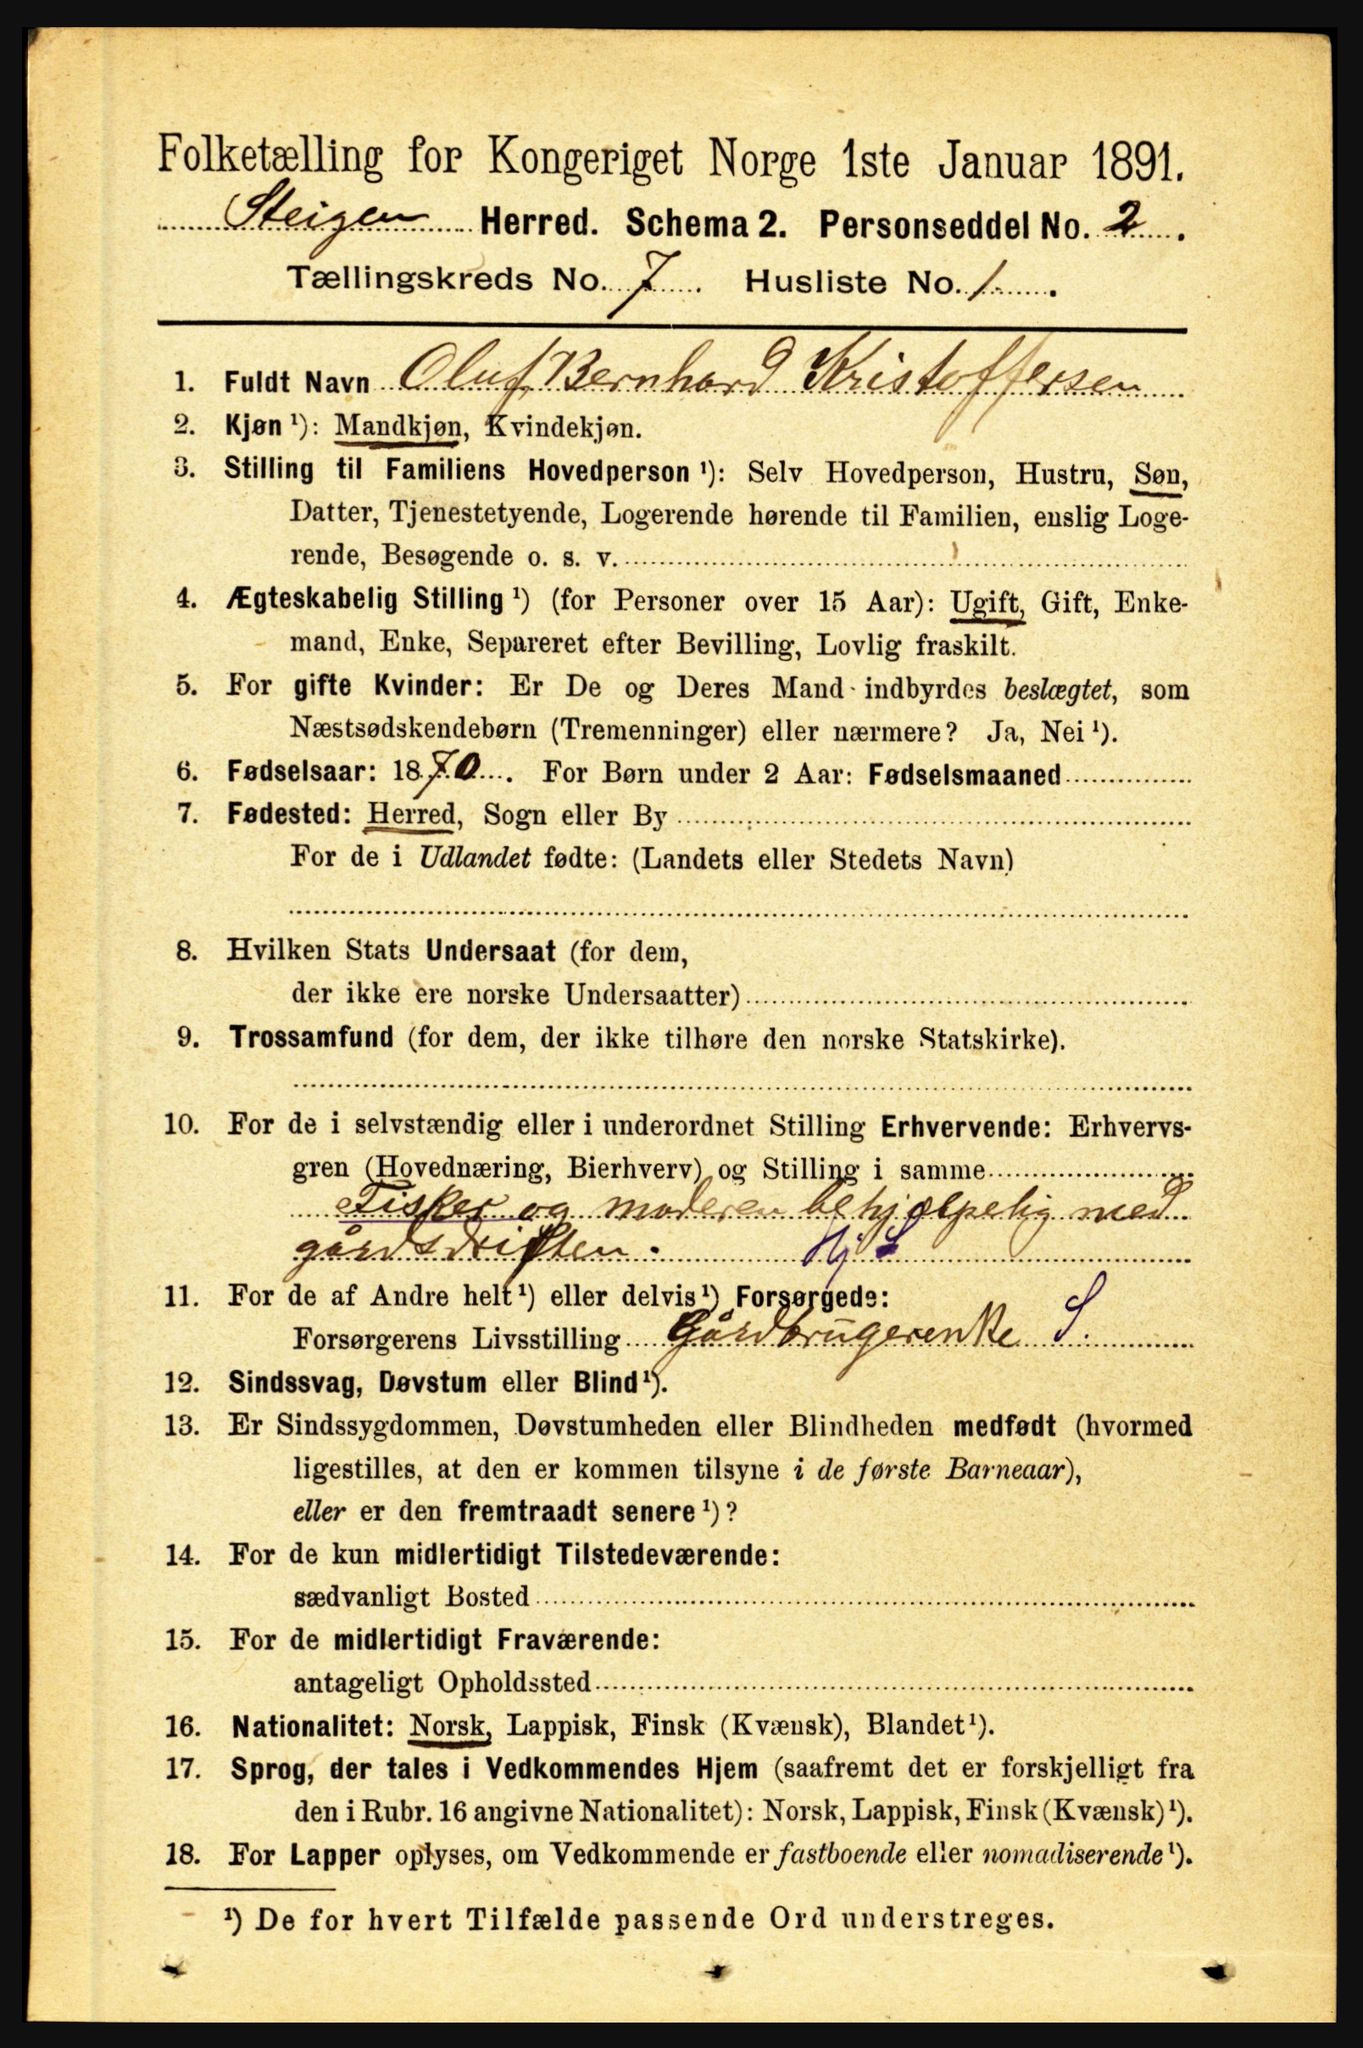 Folketælling for Kongeriget Norge 1ste Januar 1891.
Steigen Herred. Schema 2. Personseddel No. 2.
Tællingskreds No. 7. Husliste No. 1.
1. Fuldt Navn Oluf Bernhard Kristoffersen
2. Kjøn ¹): Mandkjøn, Kvindekjøn.
3. Stilling til Familiens Hovedperson ¹): Selv Hovedperson, Hustru, Søn,
Datter, Tjenestetyende, Logerende hørende til Familien, enslig Loge-
rende, Besøgende o. s. v.
4. Ægteskabelig Stilling ¹) (for Personer over 15 Aar): Ugift, Gift, Enke-
mand, Enke, Separeret efter Bevilling, Lovlig fraskilt.
5. For gifte Kvinder: Er De og Deres Mand indbyrdes beslægtet, som
Næstsødskendebørn (Tremenninger) eller nærmere? Ja, Nei ¹).
6. Fødselsaar: 1870. For Børn under 2 Aar: Fødselsmaaned
7. Fødested: Herred, Sogn eller By
For de i Udlandet fødte: (Landets eller Stedets Navn)
8. Hvilken Stats Undersaat (for dem,
der ikke ere norske Undersaatter)
9. Trossamfund (for dem, der ikke tilhøre den norske Statskirke).
10. For de i selvstændig eller i underordnet Stilling Erhvervende: Erhvervs-
gren (Hovednæring, Bierhverv) og Stilling i samme
Fisker og moderen behjælpelig med
gårdsdriften. Hj S
11. For de af Andre helt ¹) eller delvis ¹) Forsørgede:
Forsørgerens Livsstilling Gårdbrugerenke S.
12. Sindssvag, Døvstum eller Blind ¹).
13. Er Sindssygdommen, Døvstumheden eller Blindheden medfødt (hvormed
ligestilles, at den er kommen tilsyne i de første Barneaar),
eller er den fremtraadt senere ¹)?
14. For de kun midlertidigt Tilstedeværende:
sædvanligt Bosted
15. For de midlertidigt Fraværende:
antageligt Opholdssted
16. Nationalitet: Norsk, Lappisk, Finsk (Kvænsk), Blandet ¹).
17. Sprog, der tales i Vedkommendes Hjem (saafremt det er forskjelligt fra
den i Rubr. 16 angivne Nationalitet): Norsk, Lappisk, Finsk (Kvænsk) ¹).
18. For Lapper oplyses, om Vedkommende er fastboende eller nomadiserende ¹).
¹) De for hvert Tilfælde passende Ord understreges.